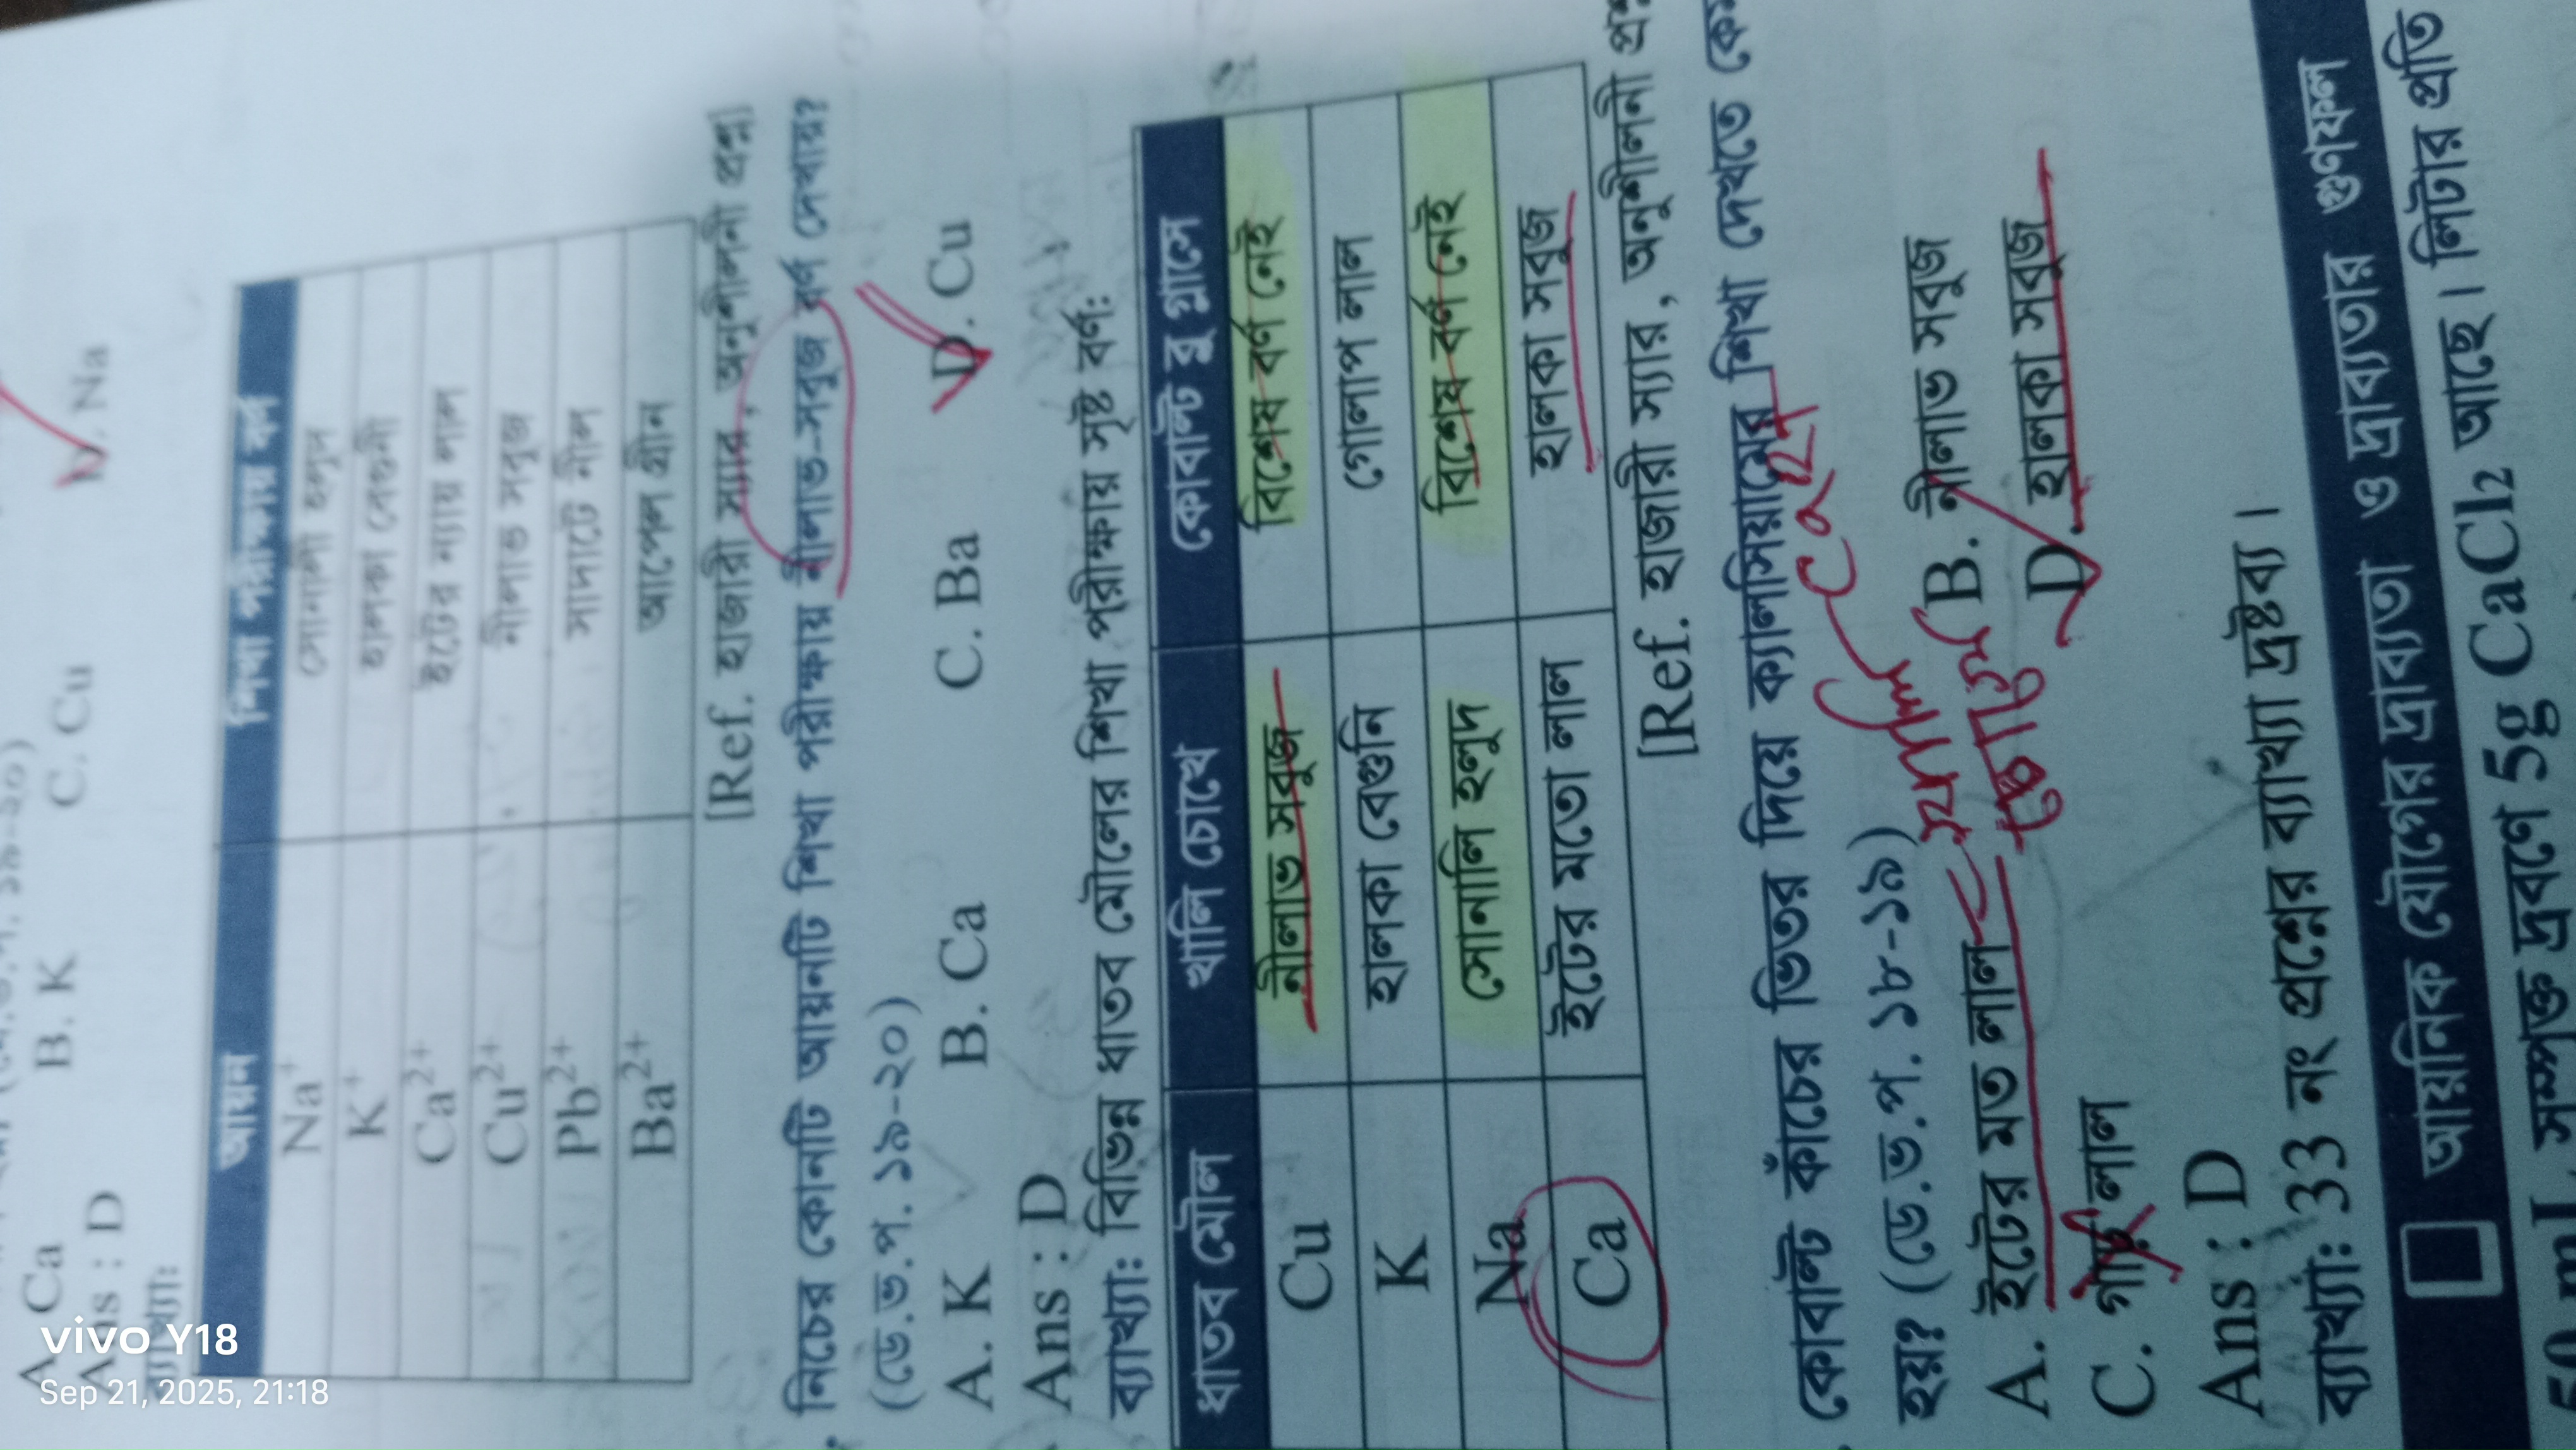 A. Ca B. K C. Cu D. Na
Ans : D
ব্যাখ্যা:
আয়ন শিখা পরীক্ষায় বর্ণ
Na⁺ সোনালী হলুদ
K⁺ হালকা বেগুনী
Ca²⁺ ইটের ন্যায় লাল
Cu²⁺ নীলাভ সবুজ
Pb²⁺ সাদাটে নীল
Ba²⁺ আপেল গ্রীন
[Ref. হাজারী স্যার, অনুশীলনী প্রশ্ন]
নিচের কোনটি আয়নটি শিখা পরীক্ষায় নীলাভ-সবুজ বর্ণ দেখায়?
(ডে.ভ.প. ১৯-২০)
A. K B. Ca C. Ba D. Cu
Ans : D
ব্যাখ্যা: বিভিন্ন ধাতব মৌলের শিখা পরীক্ষায় সৃষ্ট বর্ণ:
ধাতব মৌল খালি চোখে কোবাল্ট ব্লু গ্লাসে
Cu নীলাভ সবুজ বিশেষ বর্ণ নেই
K হালকা বেগুনি গোলাপ লাল
Na সোনালি হলুদ বিশেষ বর্ণ নেই
Ca ইটের মতো লাল হালকা সবুজ
[Ref. হাজারী স্যার, অনুশীলনী
কোবাল্ট কাঁচের ভিতর দিয়ে ক্যালসিয়ামের শিখা দেখতে
হয়? (ডে.ভ.প. ১৮-১৯)
A. ইটের মত লাল B. নীলাভ সবুজ
C. গাঢ় লাল D. হালকা সবুজ
Ans : D
ব্যাখ্যা: 33 নং প্রশ্নের ব্যাখ্যা দ্রষ্টব্য।
আয়নিক যৌগের দ্রাব্যতা ও দ্রাব্যতার গুণফল
50 mL সম্পৃক্ত দ্রবণে 5g CaCl₂ আছে। লিটার প্রতি
vivo Y18
Sep 21, 2025, 21:18